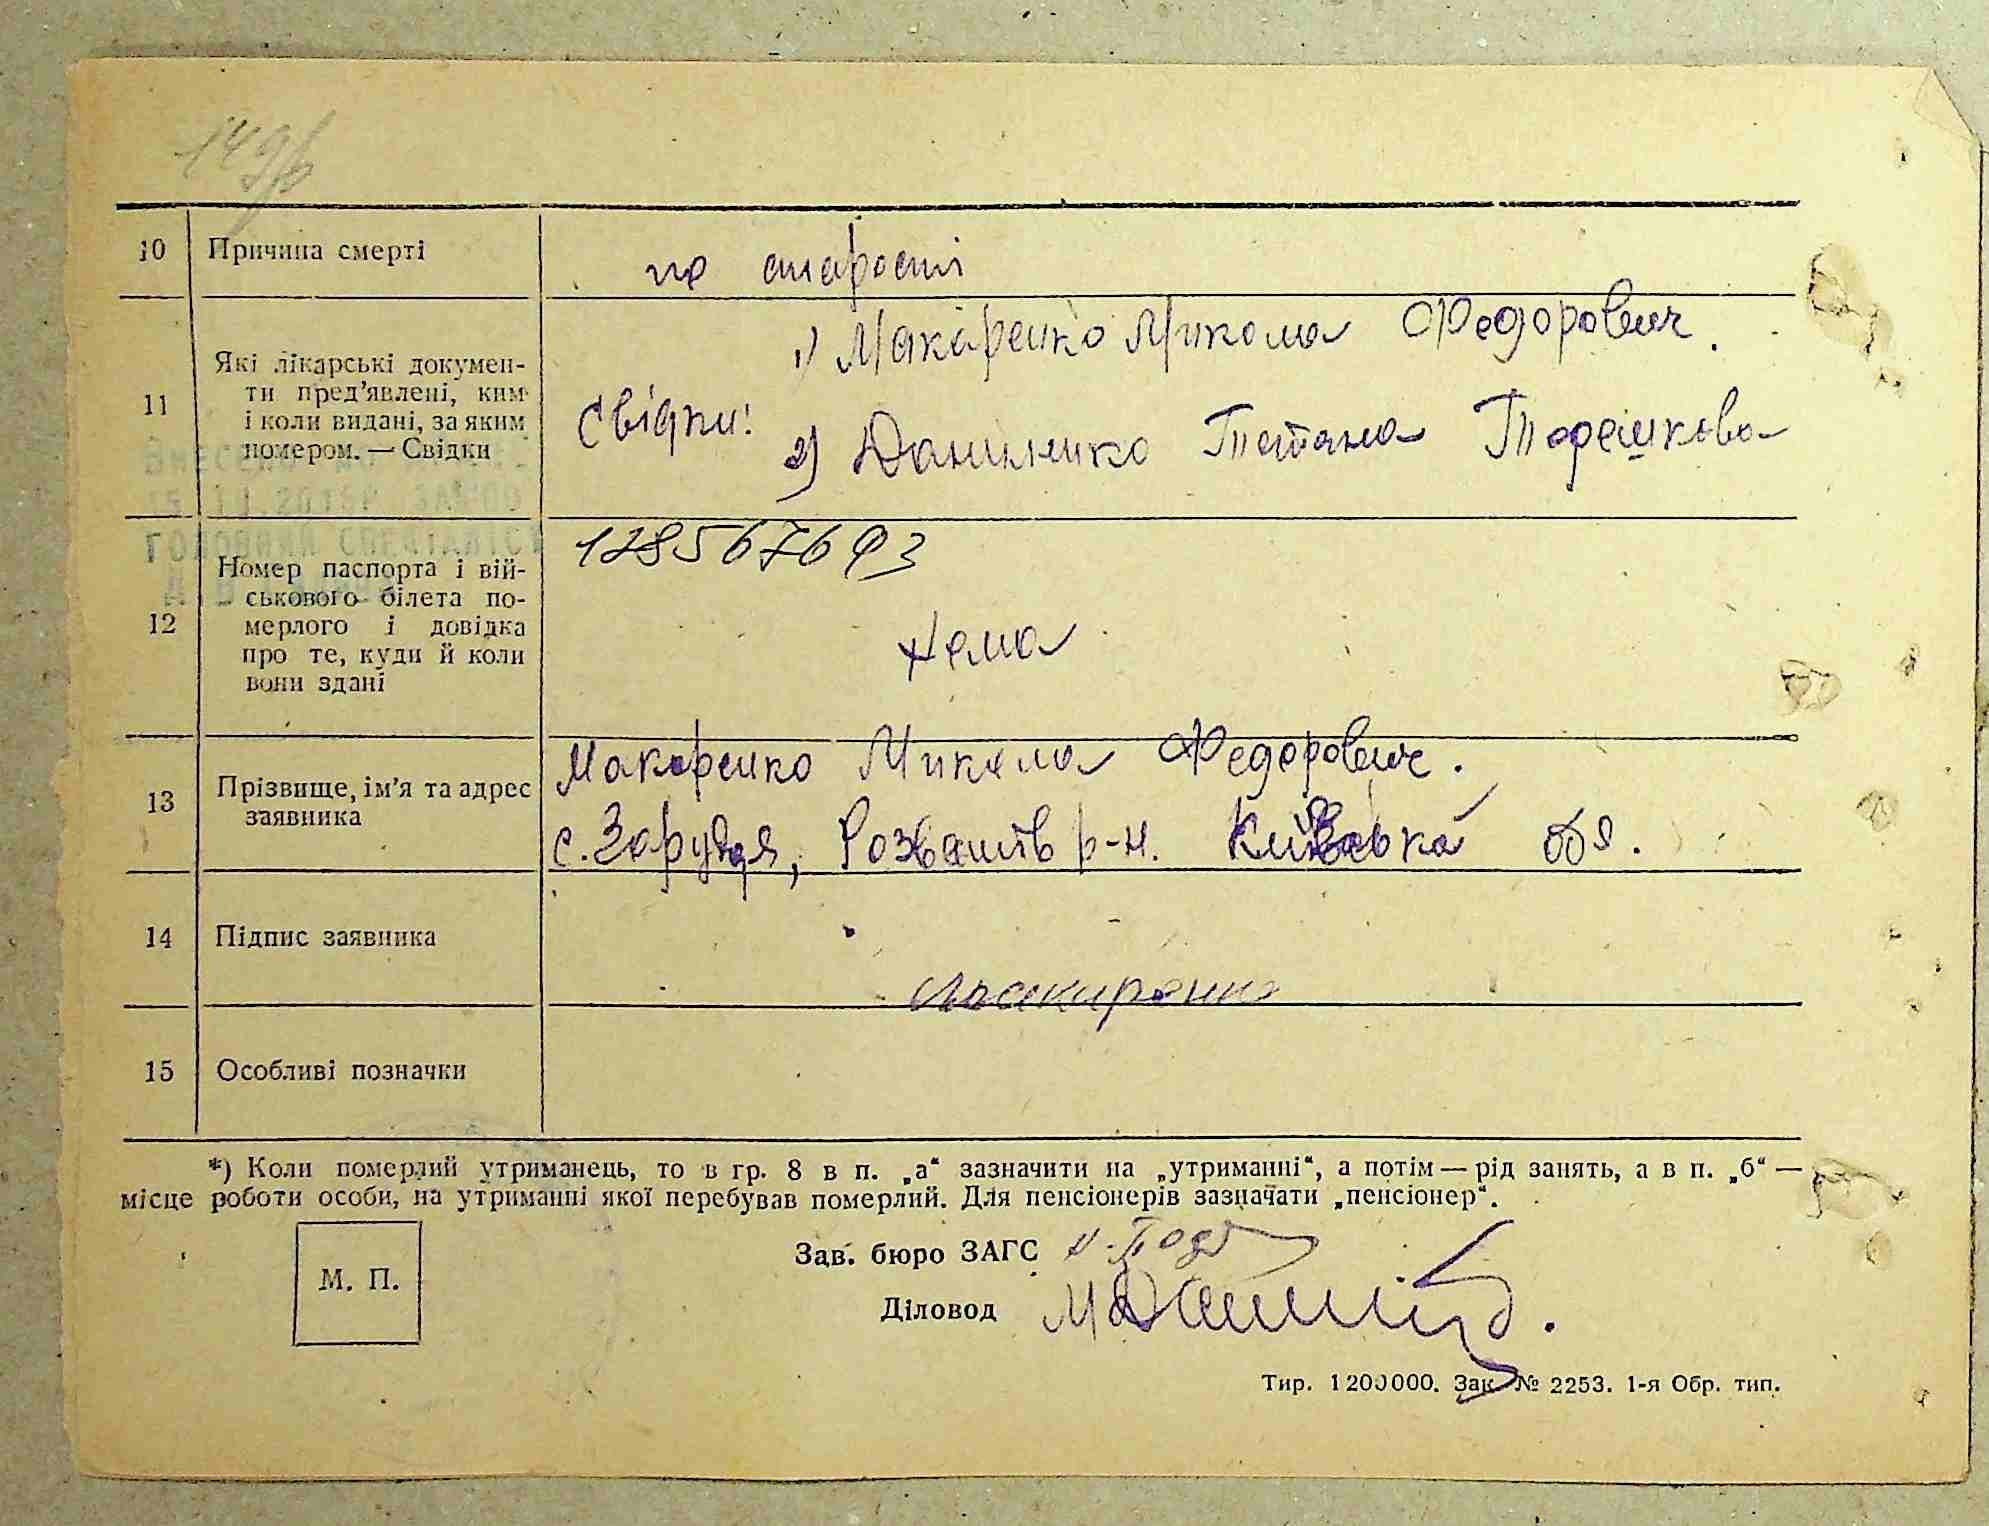 10 Причина смерті по старості
1) Макаренко Микола Федорович.
11 Які лікарські докумен-
ти пред'явлені, ким
і коли видані, за яким
номером. — Свідки
Свідки:
2) Даниленко Тетяна Терешкова
12 Номер паспорта і вій-
ськового білета по-
мерлого і довідка
про те, куди й коли
вони здані
Нема
13 Прізвище, ім'я та адрес
заявника
Макаренко Микола Федорович.
с. Заруддя, Розважів р-н. Київська обл.
14 Підпис заявника
Макаренко
15 Особливі позначки
*) Коли померлий утриманець, то в гр. 8 в п. „а“ зазначити на „утриманні“, а потім — рід занять, а в п. „б“ —
місце роботи особи, на утриманні якої перебував померлий. Для пенсіонерів зазначати „пенсіонер“.
М. П.
Зав. бюро ЗАГС
Діловод
Тир. 1200000. Зак. № 2253. 1-я Обр. тип.